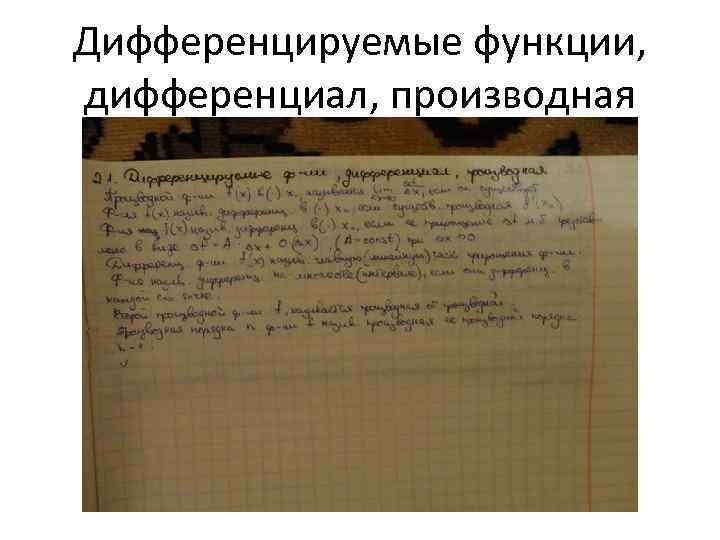 Дифференцируемые функции,
дифференциал, производная
21. Дифференцируемые ф-ии, дифференциал, производная
Производной ф-ии f(x) в (·) x₀ называется lim Δf/Δx, если он существует
Ф-ия f(x) назыв. дифференц. в (·) x₀, если существ. производная f'(x₀)
Ф-ия f(x) назыв. дифференц. в (·) x₀, если ее приращение Δf м.б. представ-
лено в виде Δf = A·Δx + O(Δx), (A-const) при Δx→0
Дифференц. ф-ии f(x) назыв. главную (линейную) часть приращения ф-ии.
Ф-ию назыв. дифференц. на множестве (интервале), если она дифференц. в
каждой его точке.
Второй производной ф-ии f, называется производная от производной.
Производная порядка n ф-ии f назыв. производная ее производной порядка
n-1.